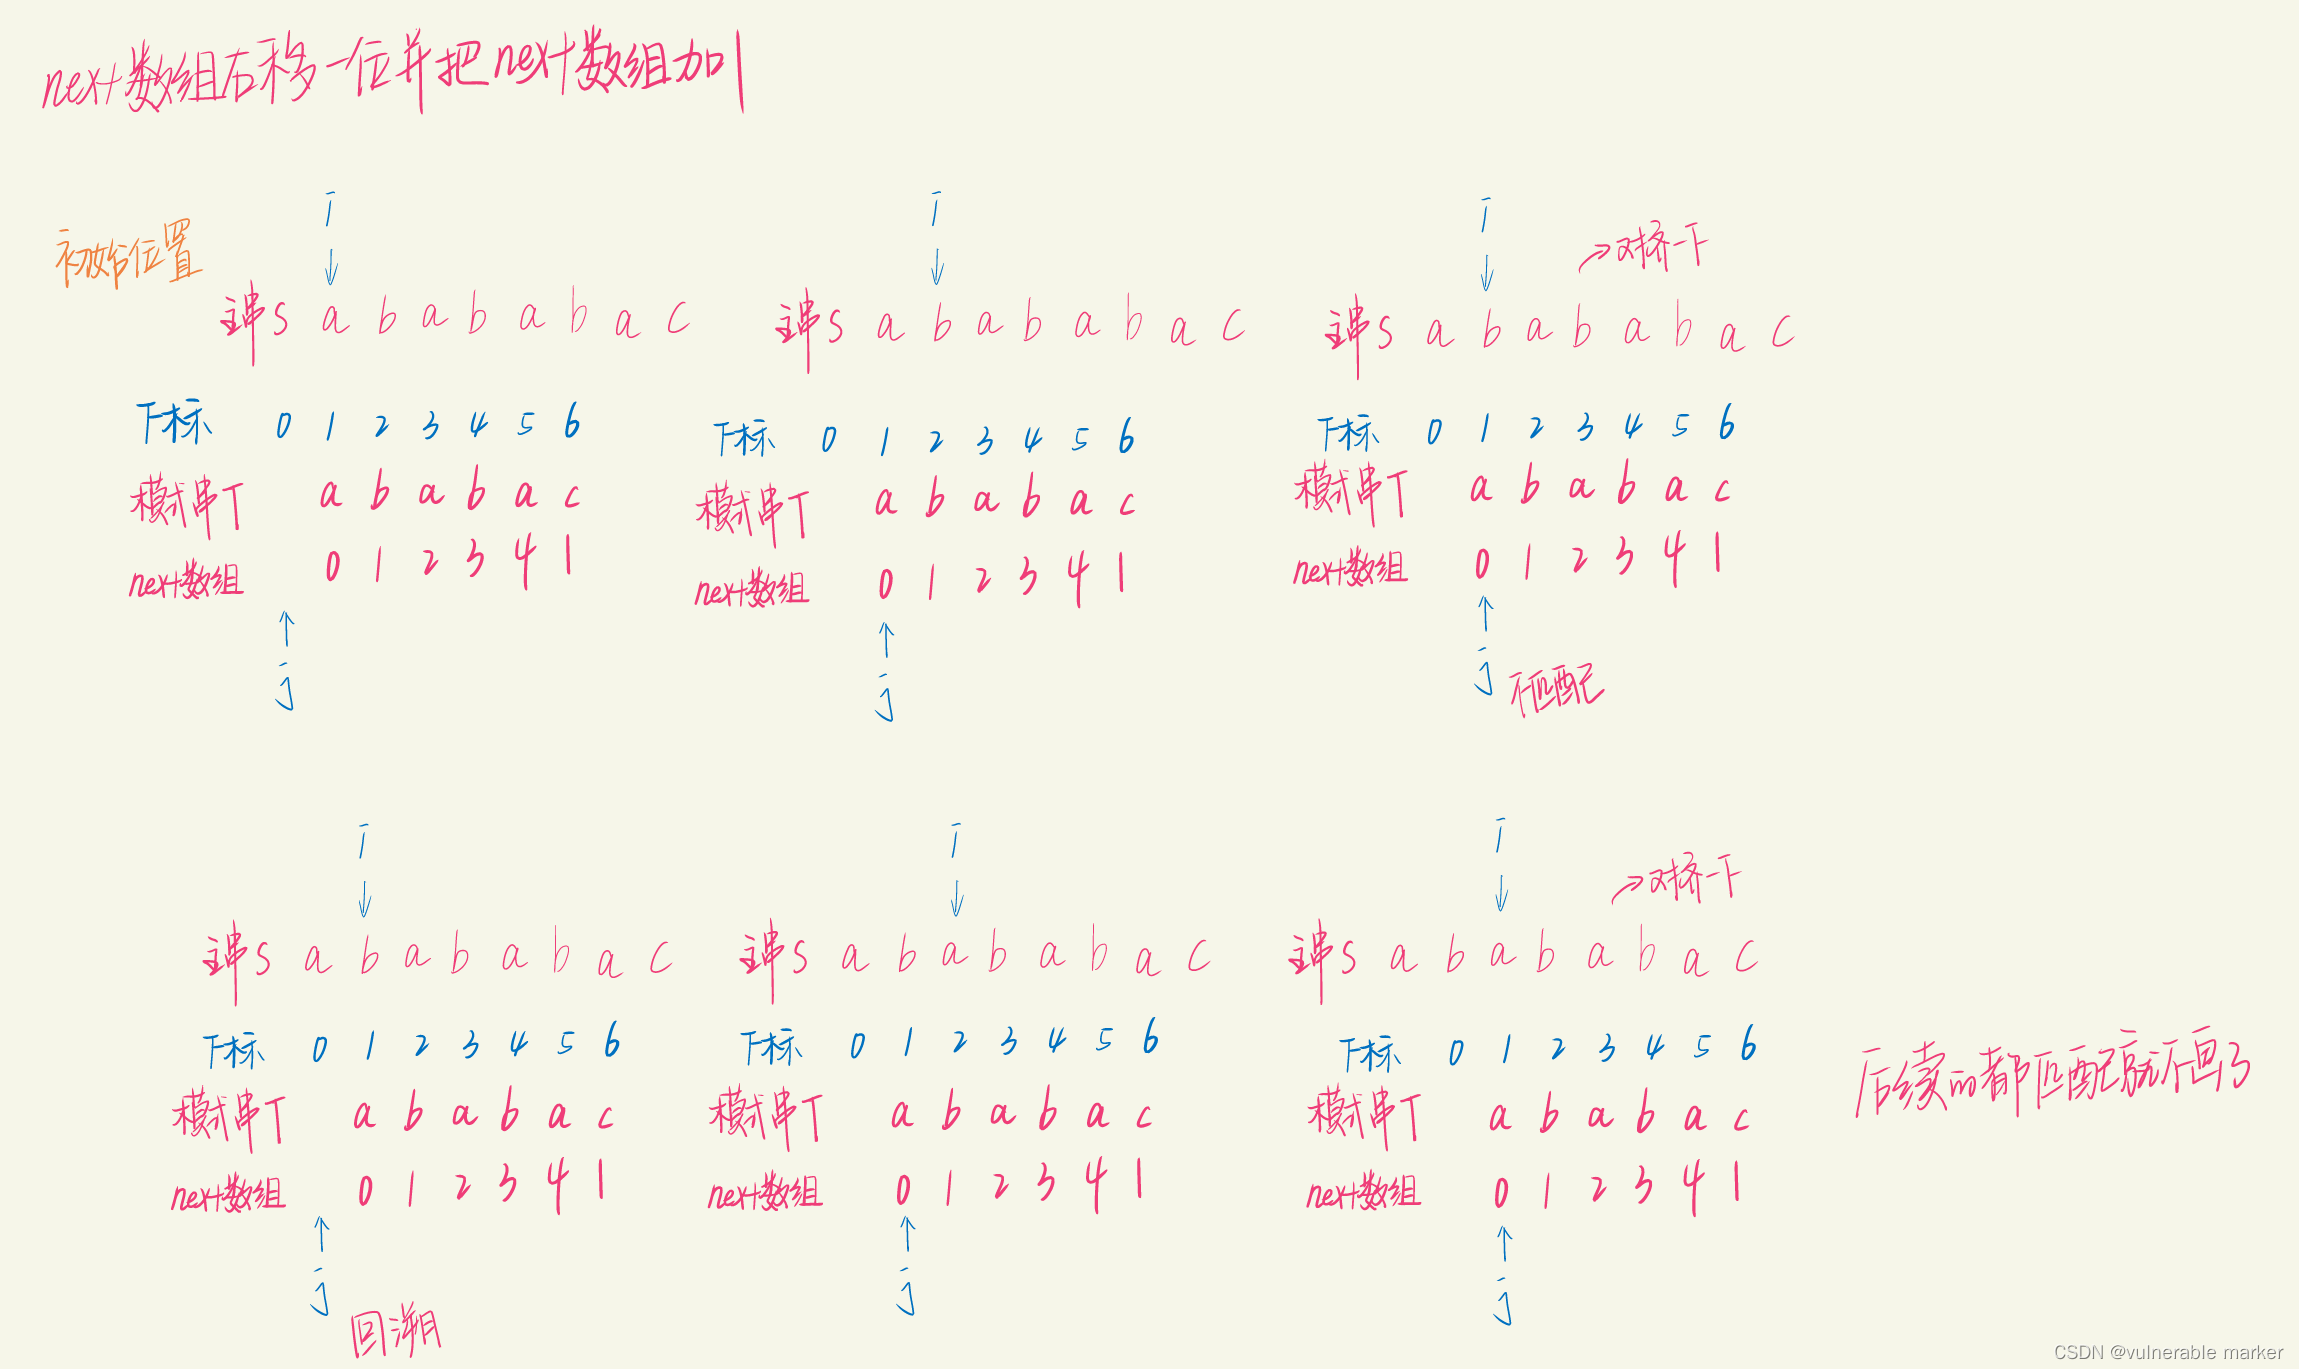 next数组右移一位并把next数组加1
初始位置
i
主串S a b a b a b a c
下标 0 1 2 3 4 5 6
模式串T a b a b a c
next数组 0 1 2 3 4 1
j
i
主串S a b a b a b a c
下标 0 1 2 3 4 5 6
模式串T a b a b a c
next数组 0 1 2 3 4 1
j
i
→对挤一下
主串S a b a b a b a c
下标 0 1 2 3 4 5 6
模式串T a b a b a c
next数组 0 1 2 3 4 1
j 不匹配
i
主串S a b a b a b a c
下标 0 1 2 3 4 5 6
模式串T a b a b a c
next数组 0 1 2 3 4 1
j
回溯
i
主串S a b a b a b a c
下标 0 1 2 3 4 5 6
模式串T a b a b a c
next数组 0 1 2 3 4 1
j
i
→对挤一下
主串S a b a b a b a c
下标 0 1 2 3 4 5 6
模式串T a b a b a c
next数组 0 1 2 3 4 1
j
后续的都匹配就不画了
CSDN @vulnerable marker